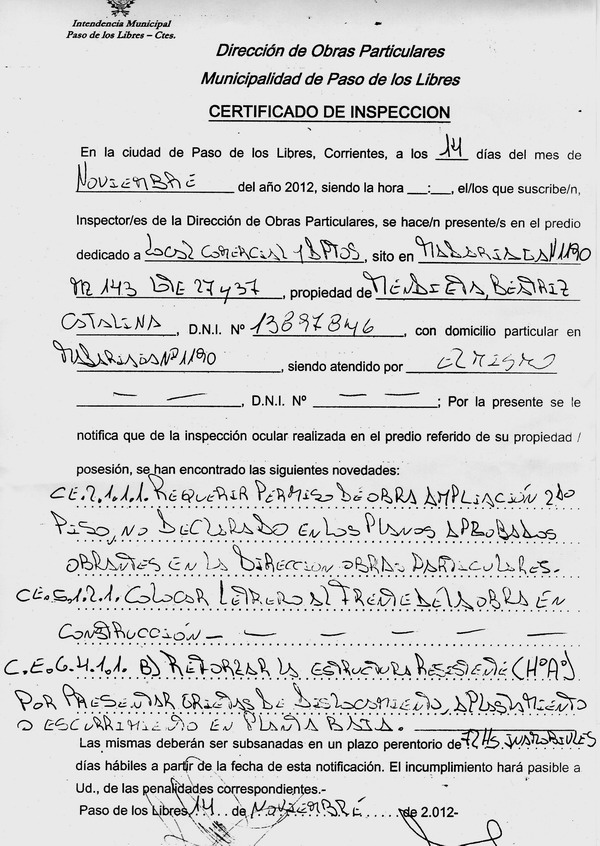 Intendencia Municipal
Paso de los Libres – Ctes.
Dirección de Obras Particulares
Municipalidad de Paso de los Libres
CERTIFICADO DE INSPECCION
En la ciudad de Paso de los Libres, Corrientes, a los 14 días del mes de
NOVIEMBRE del año 2012, siendo la hora __:__, el/los que suscribe/n,
Inspector/es de la Dirección de Obras Particulares, se hace/n presente/s en el predio
dedicado a LOCAL COMERCIAL Y DPTOS, sito en MADARIAGA Nº 1190
MZ 143 27 y 37, propiedad de MENDIETA, BEATRIZ
CATALINA, D.N.I. Nº 13897846, con domicilio particular en
MADARIAGA Nº 1190, siendo atendido por EL MISMO
— —, D.N.I. Nº — —; Por la presente se le
notifica que de la inspección ocular realizada en el predio referido de su propiedad /
posesión, se han encontrado las siguientes novedades:
C.E.2.1.1.1. REQUERIR PERMISO DE OBRA AMPLIACIÓN 2DO
PISO, NO DECLARADO EN LOS PLANOS APROBADOS
OBRANTES EN LA DIRECCION OBRAS PARTICULARES.
C.E.5.1.2.1. COLOCAR LETRERO AL FRENTE DE LA OBRA EN
CONSTRUCCIÓN — — — — —
C.E.6.4.1.1. B) REFORZAR LA ESTRUCTURA RESISTENTE (HºAº)
POR PRESENTAR GRIETAS DE DISLOCAMIENTO, APLASTAMIENTO
O ESCURRIMIENTO EN PLANTA BAJA.
Las mismas deberán ser subsanadas en un plazo perentorio de 72 Hs.
días hábiles a partir de la fecha de esta notificación. El incumplimiento hará pasible a
Ud., de las penalidades correspondientes.-
Paso de los Libres, 14 de NOVIEMBRE de 2.012-